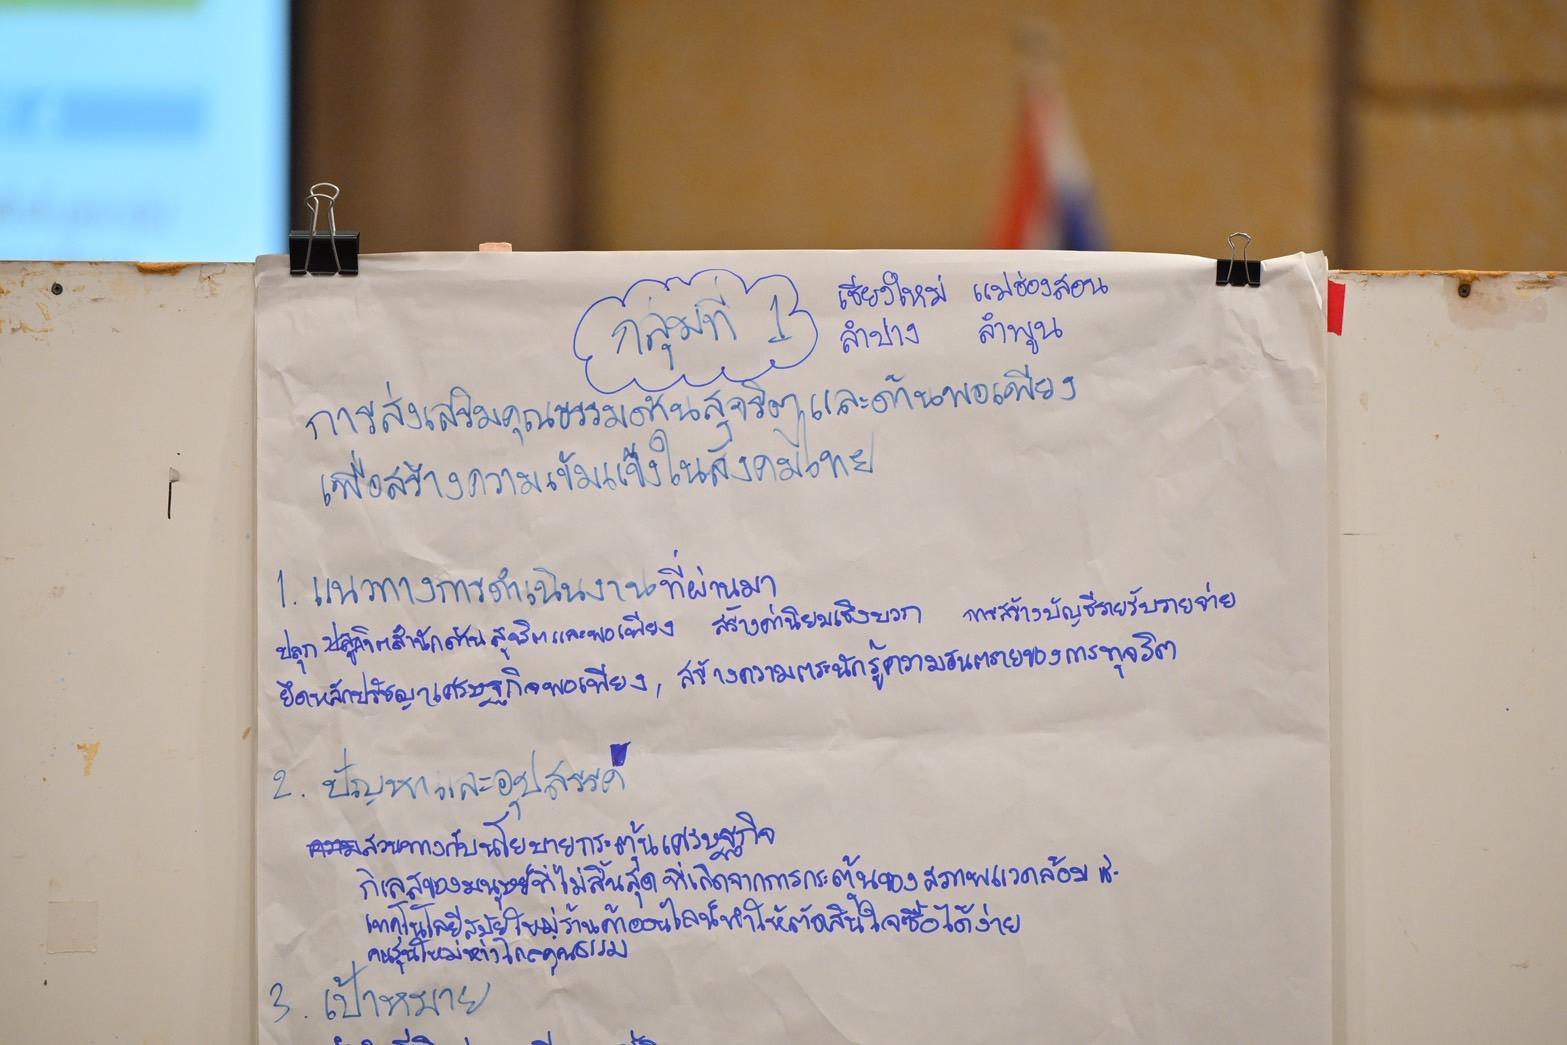 กลุ่มที่ 1
เชียงใหม่ แม่ฮ่องสอน
ลำปาง ลำพูน
การส่งเสริมคุณธรรมด้านสุจริตและด้านพอเพียง
เพื่อสร้างความเข้มแข็งในสังคมไทย
1. แนวทางการดำเนินงานที่ผ่านมา
ปลุกปลูกจิตสำนักด้านสุจริตและพอเพียง สร้างค่านิยมเชิงบวก การสร้างบัญชีรายรับรายจ่าย
ยึดหลักปรัชญาเศรษฐกิจพอเพียง, สร้างความตระนักรู้ความอันตรายของการทุจริต
2. ปัญหาและอุปสรรค
สวนทางกับนโยบายกระตุ้นเศรษฐกิจ
กิเลสของมนุษย์ที่ไม่สิ้นสุด ที่เกิดจากการกระตุ้นของสภาพแวดล้อม เช่น
เทคโนโลยีสมัยใหม่ร้านค้าออนไลน์ทำให้ตัดสินใจซื้อได้ง่าย
คนรุ่นใหม่ห่างไกลคุณธรรม
3. เป้าหมาย